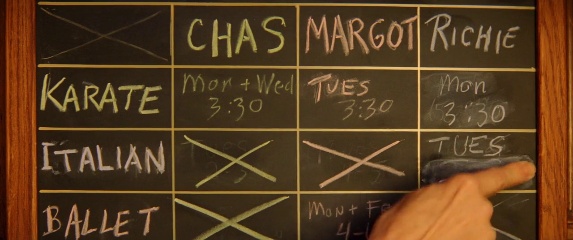 CHAS MARGOT RICHIE
KARATE Mon + Wed TUES Mon
3:30 3:30 3:30
ITALIAN TUES
BALLET Mon +